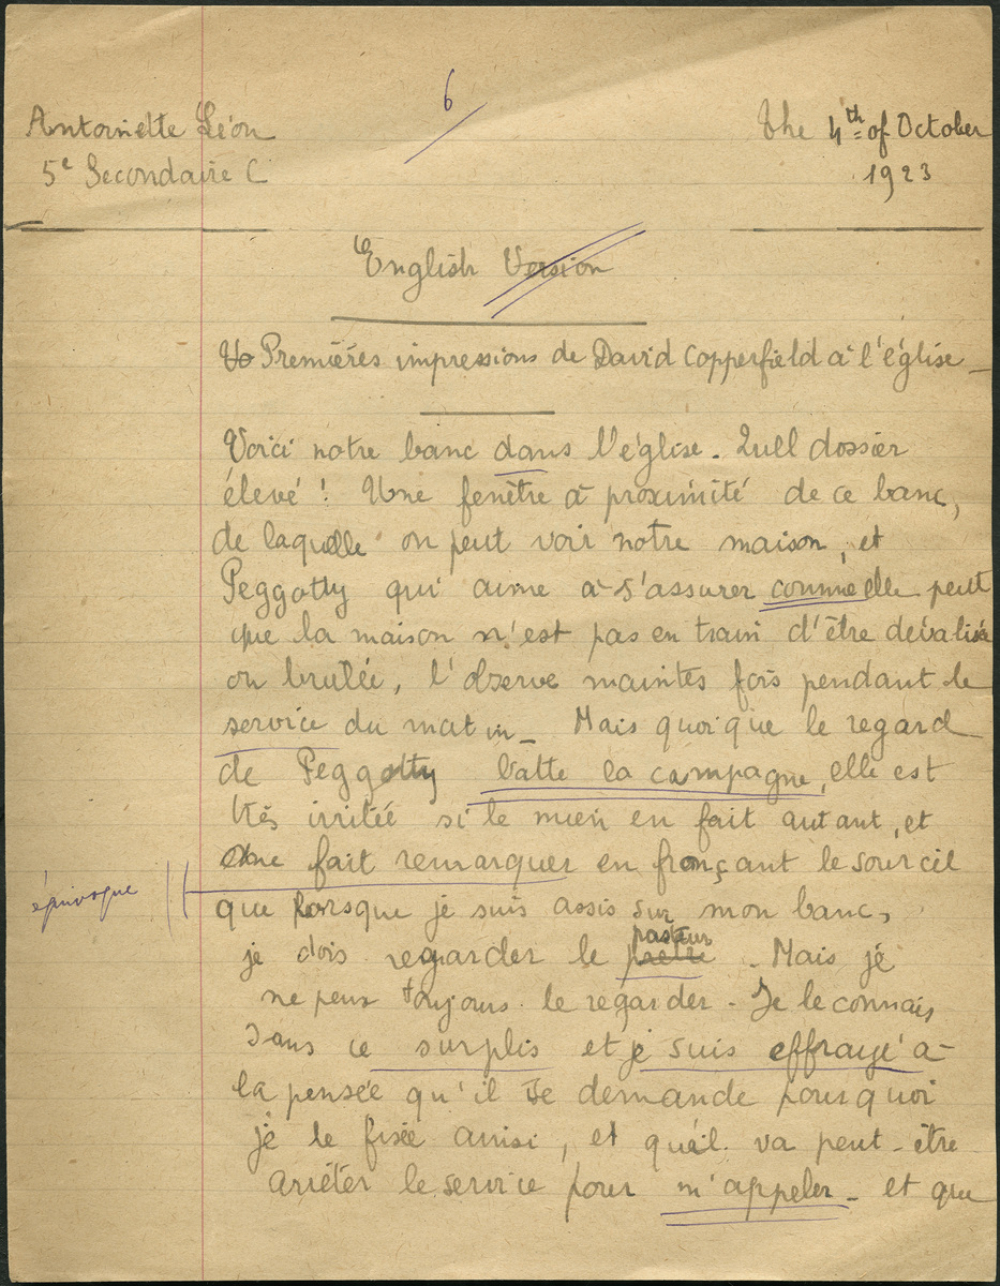 6
Antoinette Léon
The 4th of October
5e Secondaire C
1923
English Version
Vo Premières impressions de David Copperfield à l'église
Voici notre banc dans l'église. Quell dossier
élevé ! Une fenêtre à proximité de ce banc,
de laquelle on peut voir notre maison, et
Peggotty qui aime à s'assurer comme elle peut
que la maison n'est pas en train d'être dévalisée
ou brulée, l'observe maintes fois pendant le
service du matin_ Mais quoique le regard
de Peggotty batte la campagne, elle est
très irritée si le mien en fait autant, et
me fait remarquer en fronçant le sourcil
équivoque
que lorsque je suis assis sur mon banc,
je dois regarder le prêtre pasteur. Mais je
ne peux toujours le regarder. Je le connais
sans ce surplis et je suis effrayé à
la pensée qu'il se demande pourquoi
je le fixe ainsi, et qu'il va peut-être
arrêter le service pour m'appeler_ et que